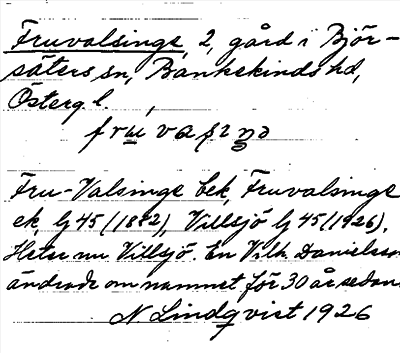 Fruvalsinge, 2, gård i Björ-
säters sn, Bankekinds hd,
Österg l.
Fru-Valsinge bek, Fruvalsinge
ek, Lj 45 (1872), Villsjö Lj 45 (1926).
Heter nu Villsjö. En Vilh. Danielsson
ändrade om namnet för 30 år sedan.
N Lindqvist 1926